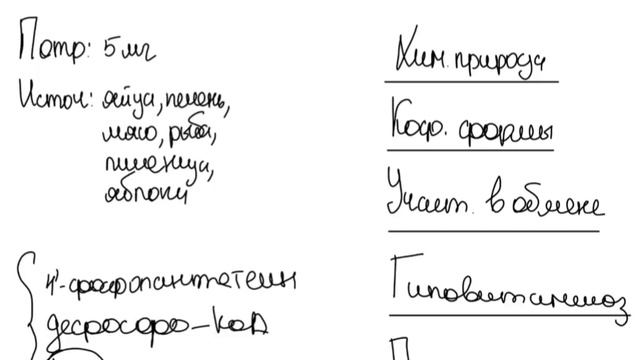 Потр: 5 мг
Источ: яйца, печень,
мясо, рыба,
пшеница,
яблоки
4'-фосфопантетеин
дефосфо-КоА
Хим. природа
Коф. формы
Участ. в обмене
Гиповитаминоз